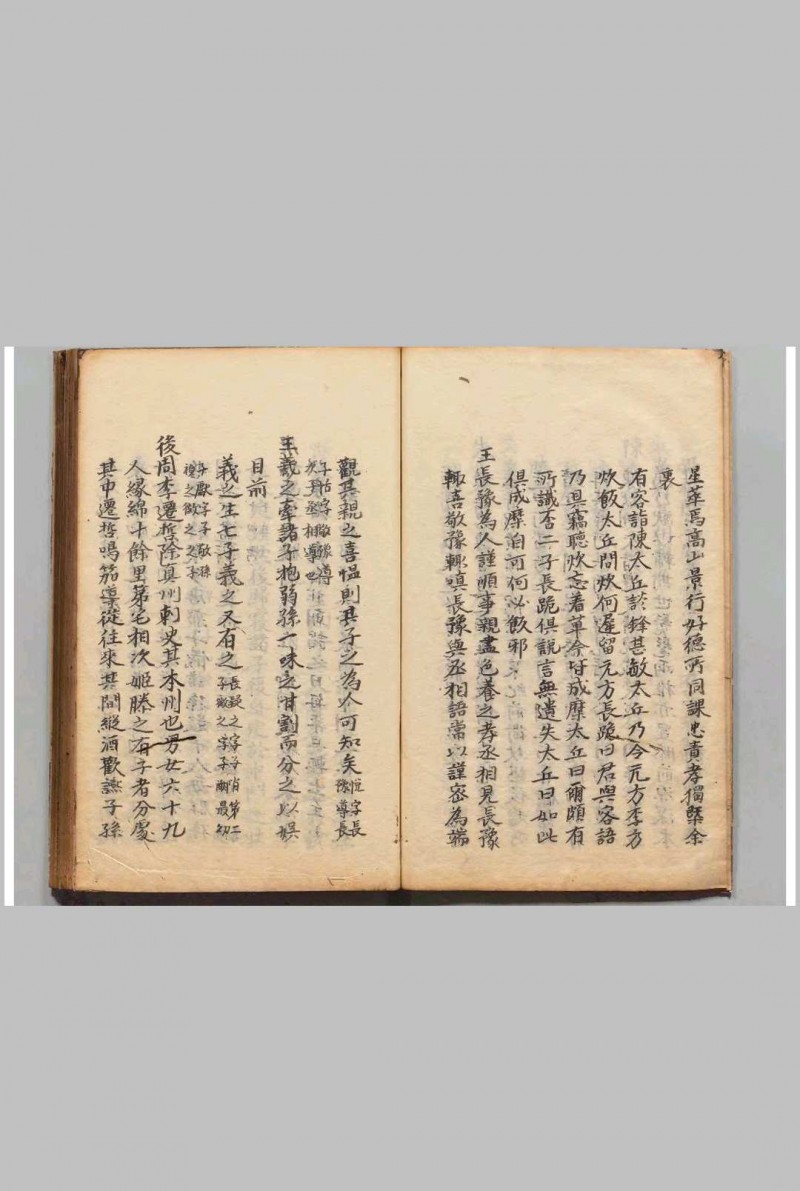 星華焉高山景行好德所同課忠責孝獨緊余
衷
有客詣陳太丘談鋒甚敏太丘乃令元方季方
炊飯太丘問炊何遲留元方長跪曰君與客語
乃具竊聽炊忘著箄今皆成糜太丘曰爾頗有
所識否二子長跪俱說言無遺失太丘曰如此
俱成糜自可何必飯邪
王長豫為人謹順事親盡色養之孝丞相見長豫
輒喜敬豫輒嗔長豫與丞相語常以謹密為端
觀其親之喜慍則其子之為人可知矣悅字長豫導長
子恬字敬豫導次子丞相導也
王羲之牽諸子抱弱孫一味之甘割而分之以娛
目前
羲之生七子羲之又有之
後周李遷哲除真州刺史其本州也男女六十九
人緣綿十餘里第宅相次姬媵之有子者分處
其中遷哲鳴笳導從往來其間縱酒歡讌子孫